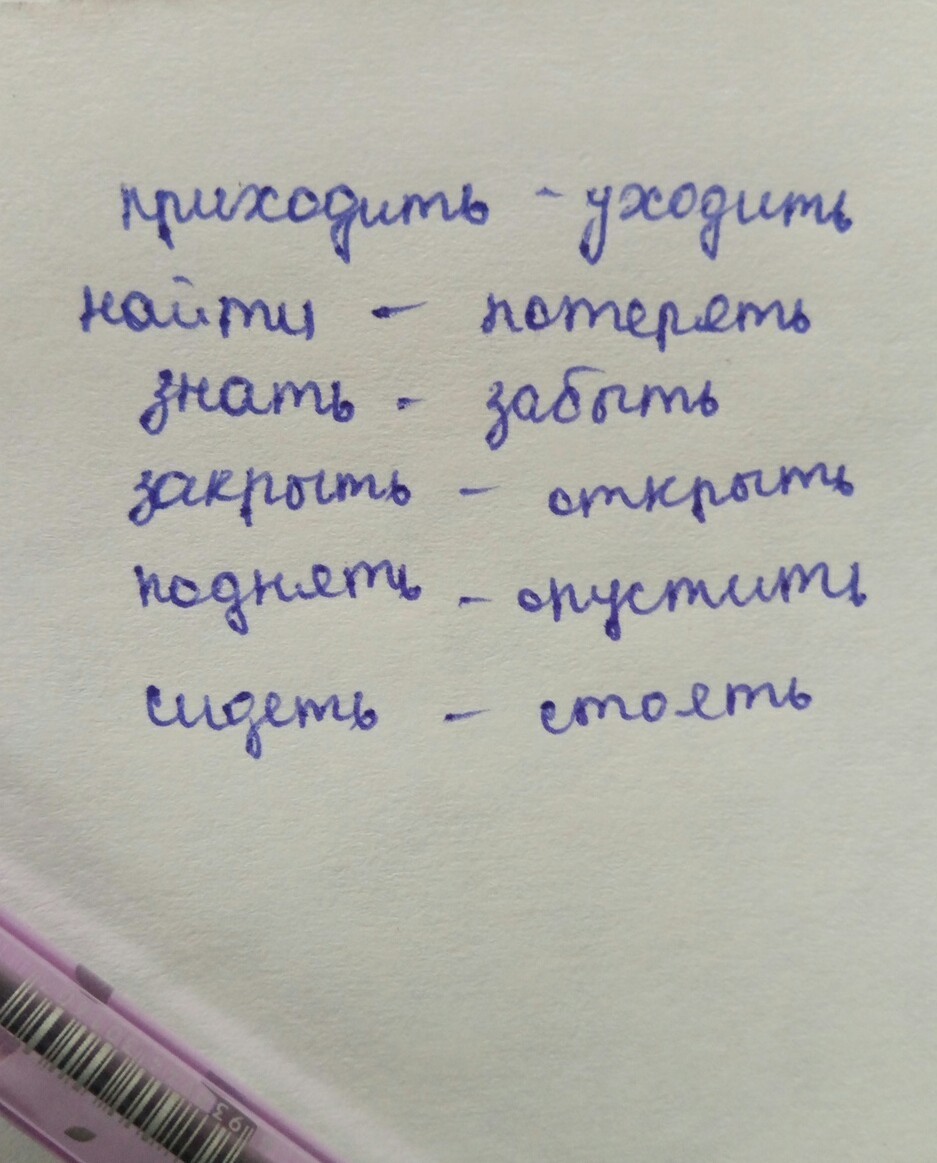 приходить - уходить
найти - потерять
знать - забыть
закрыть - открыть
поднять - опустить
сидеть - стоять